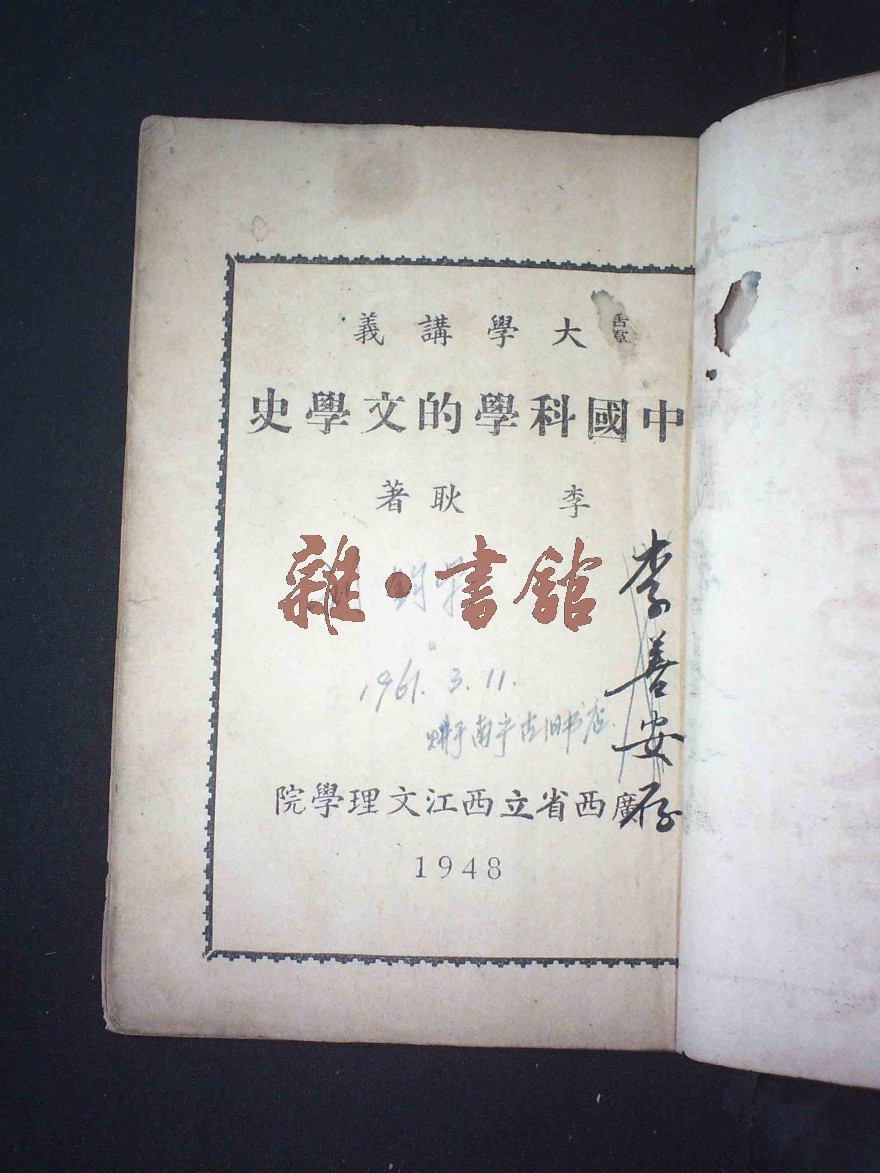 大學講義
中國科學的文學史
李耿著
雜·書館
李善安存
1961.3.11.
购于南宁古旧书店
廣西省立西江文理學院
1948